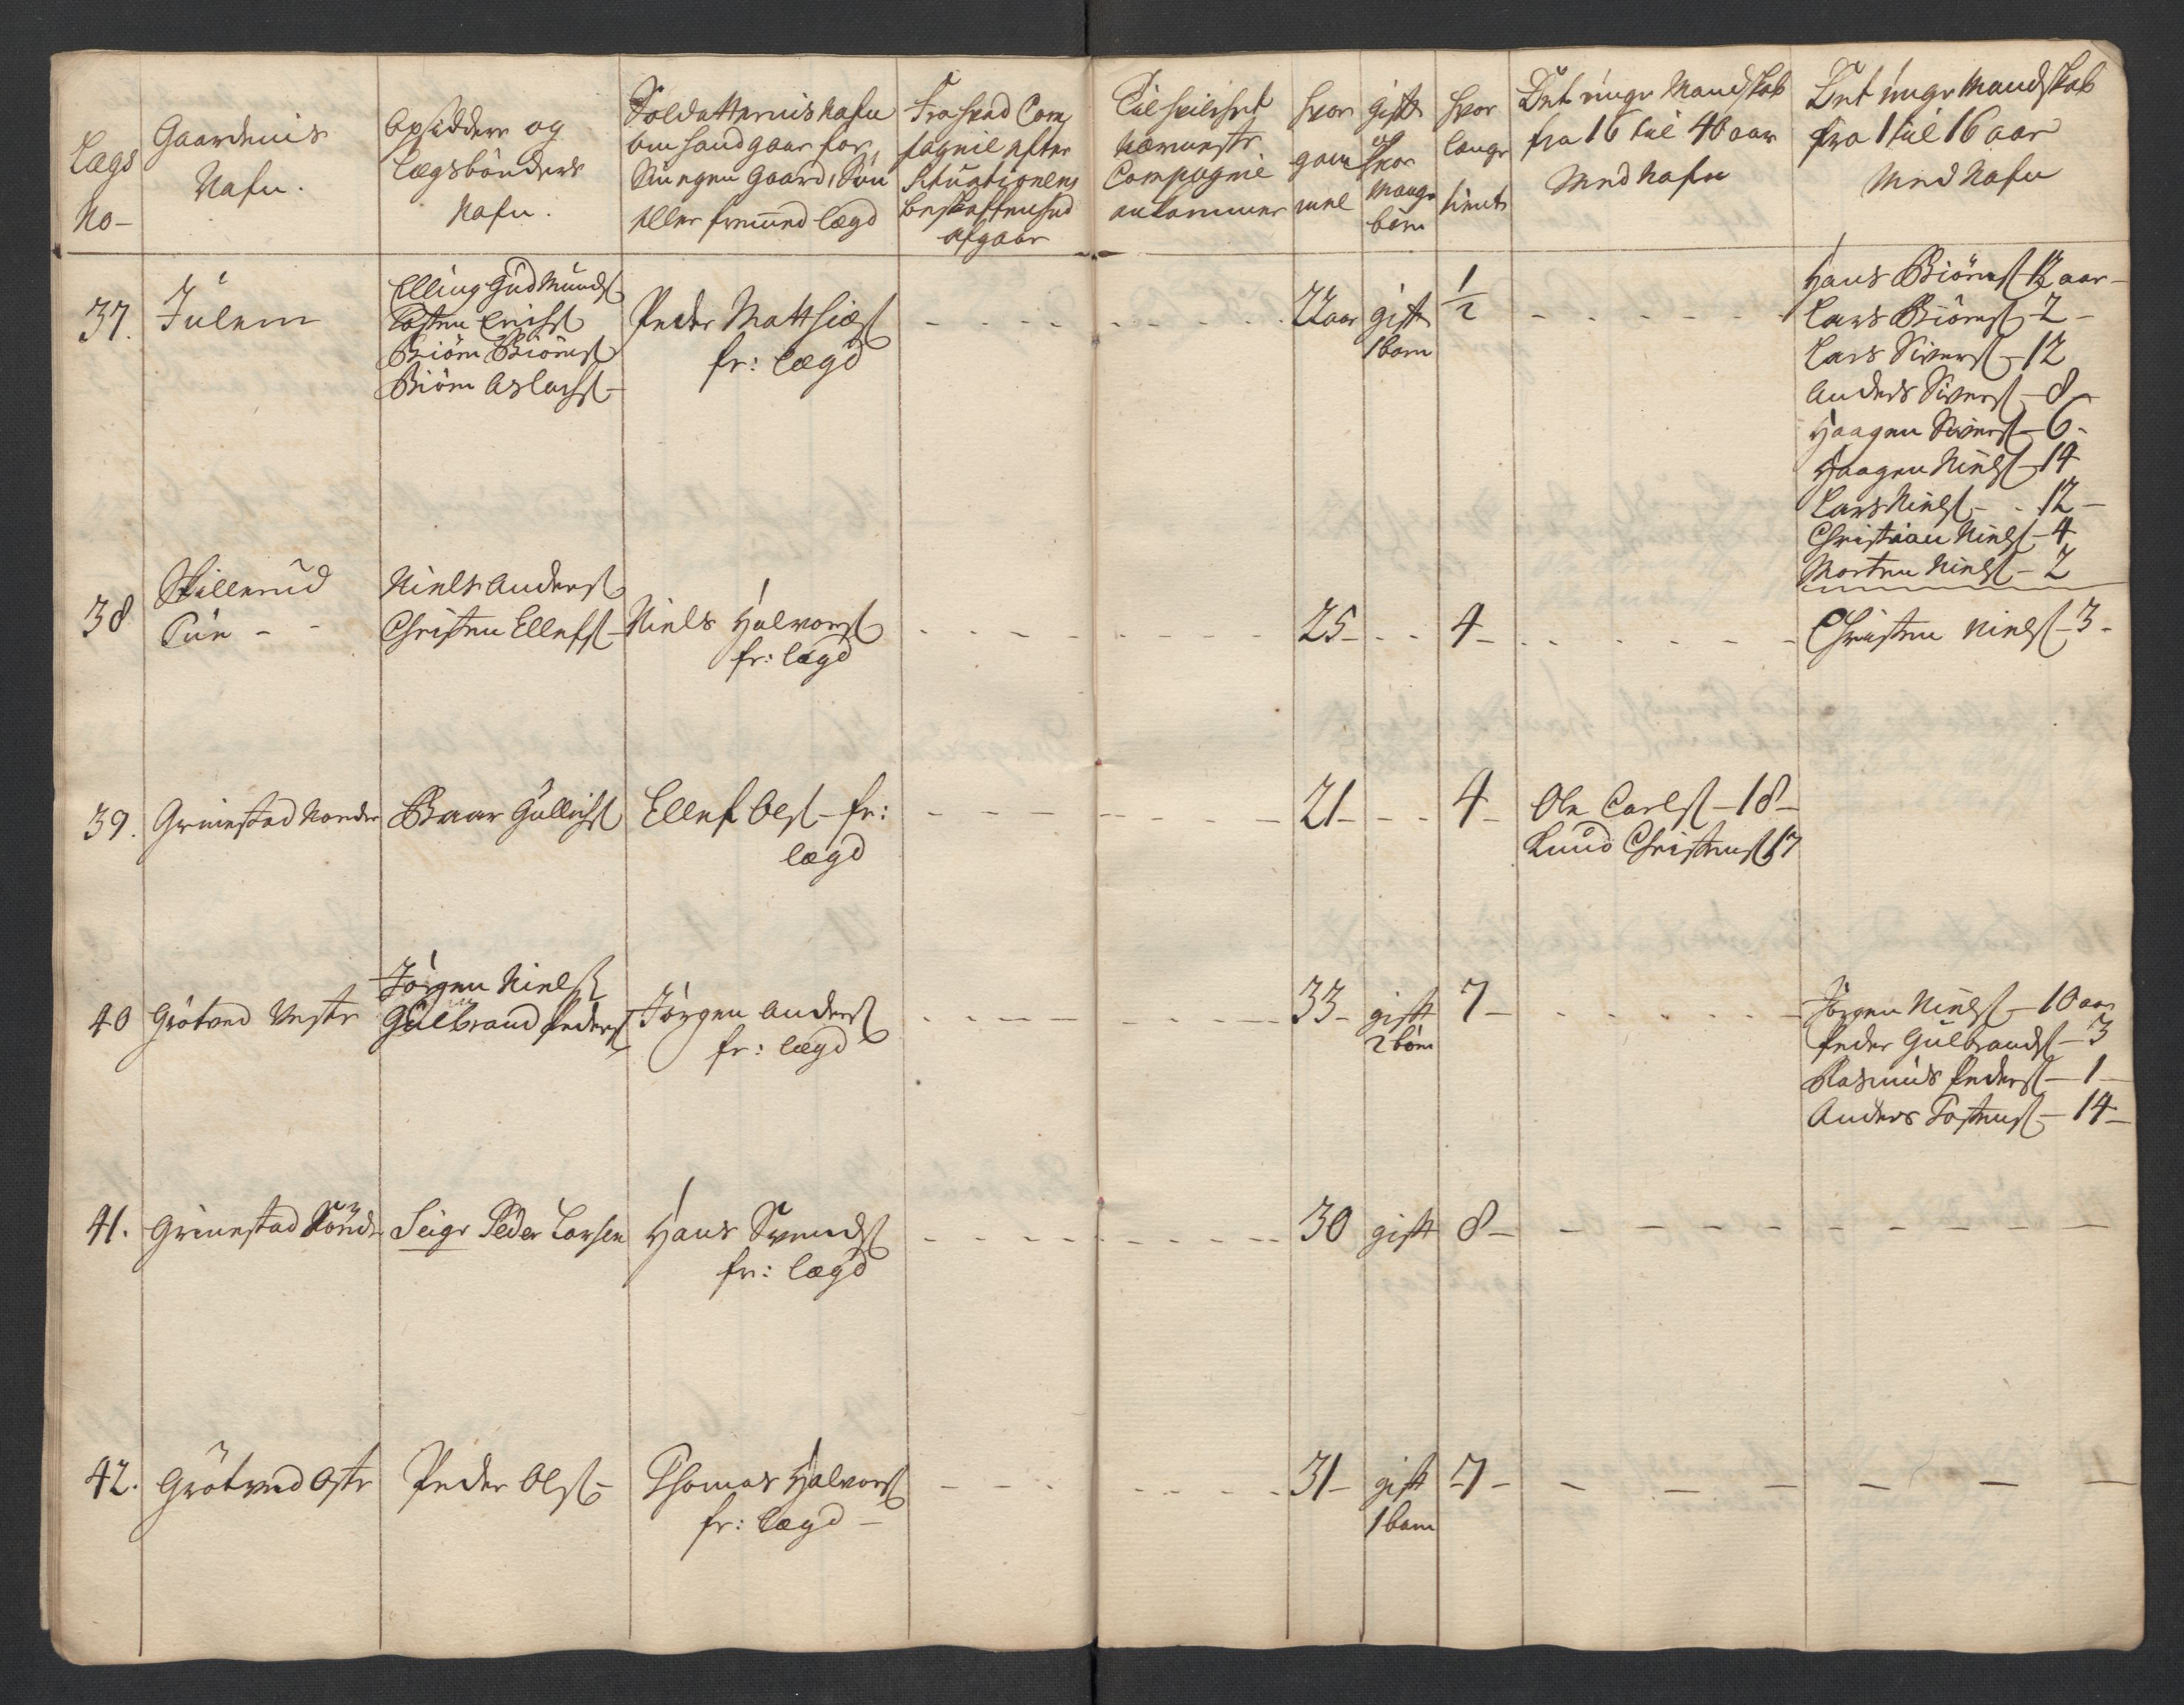 Lægs
No-
Gaardenis
Nafn.
Opsiddere og
Lægsbönders
Nafn.
Soldatternis Nafn
om hand gaar for
Nungen Gaard, Sön
eller fremmed lægd
Fra hvad Com,
pagnie efter
Situationens
beskaffenhed
afgaar
Til hvilchet
nærmeste
Compagnie
ankommer
hvor
gam
mel
gift
og
hvor
mange
börn
hvor
lenge
tient
Det unge Mandskab
fra 16 til 40 aar
Med Nafn
Det unge Mandskab
fra 1 til 16 aar
Med Nafn
37.
Julem
Elling Gudmunds
Tosten Erichs
Biörn Biörns
Biörn Aslachs-
Peder Matthies
fr: lægd
22 aar
gift
1 barn
1/2
Hans Biörns 12 aar-
Lars Biörns-2-
Lars Sivers-12
Anders Sivers-8-
Haagen Sivers-6-
Haagen Niels-14
Lars Niels-12-
Christian Niels-4
Morten Niels-2
38
Skillerud
Tue - -
Niels Anders
Christen Ellefs-
Niels Halvors
fr: lægd
25-
4-
Christen Niels-3-
39.
Grimestad Nordre
Baar Gullichs
Ellef Ols-fr:
lægd
21-
4-
Ole Carls-18-
Knud Christens 17
40
Grötved Vestr
Jörgen Niels
Gulbrand Peders
Jörgen Anders
fr: lægd
33-
gift
2 börn
7-
Jörgen Niels-10 aar
Peder Gulbrands-3
Rasmus Peders-1-
Anders Tostens-14-
41.
Grimestad Söndr
Seigr Peder Larsen
Hans Svends
fr: lægd
30
gift
8-
42.
Grötved Östr
Peder Ols-
Thomas Halvors
fr: lægd-
31-
gift
1 barn
7-